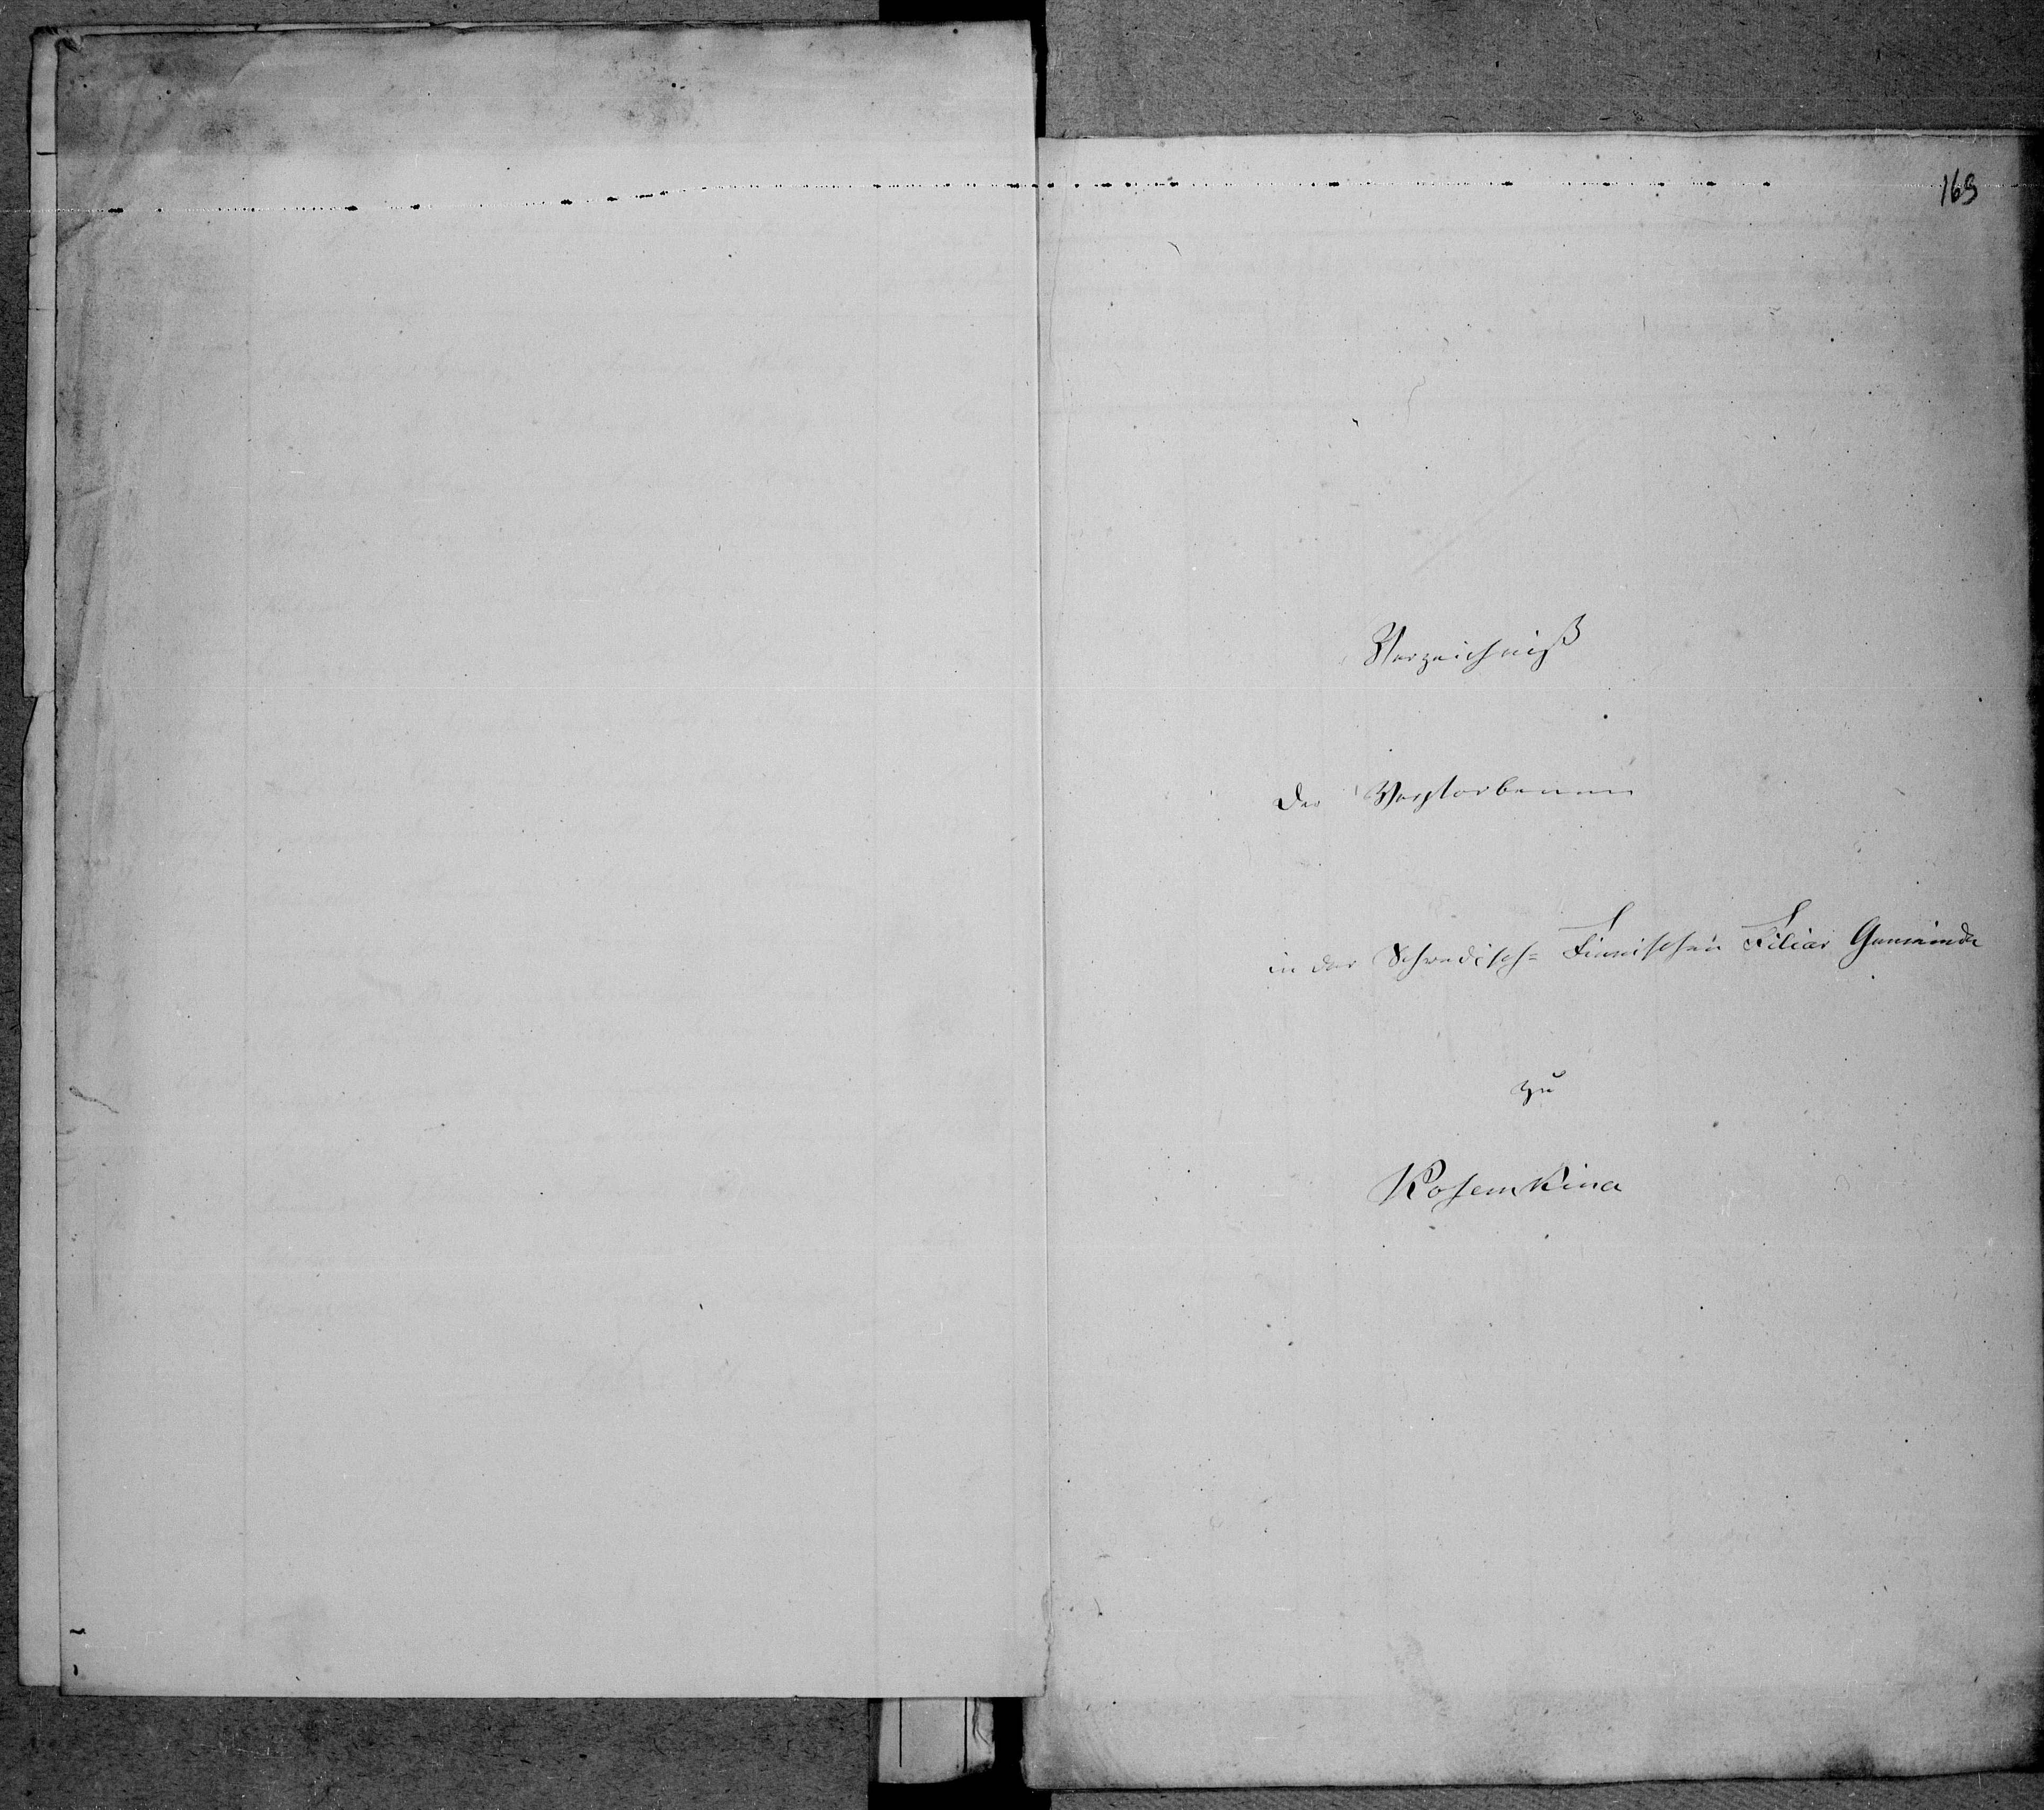 169
Verzeichniß
der Verstorbenen
in der Schwedisch= Finnischen Filial Gemeinde
zu
Kosemkina